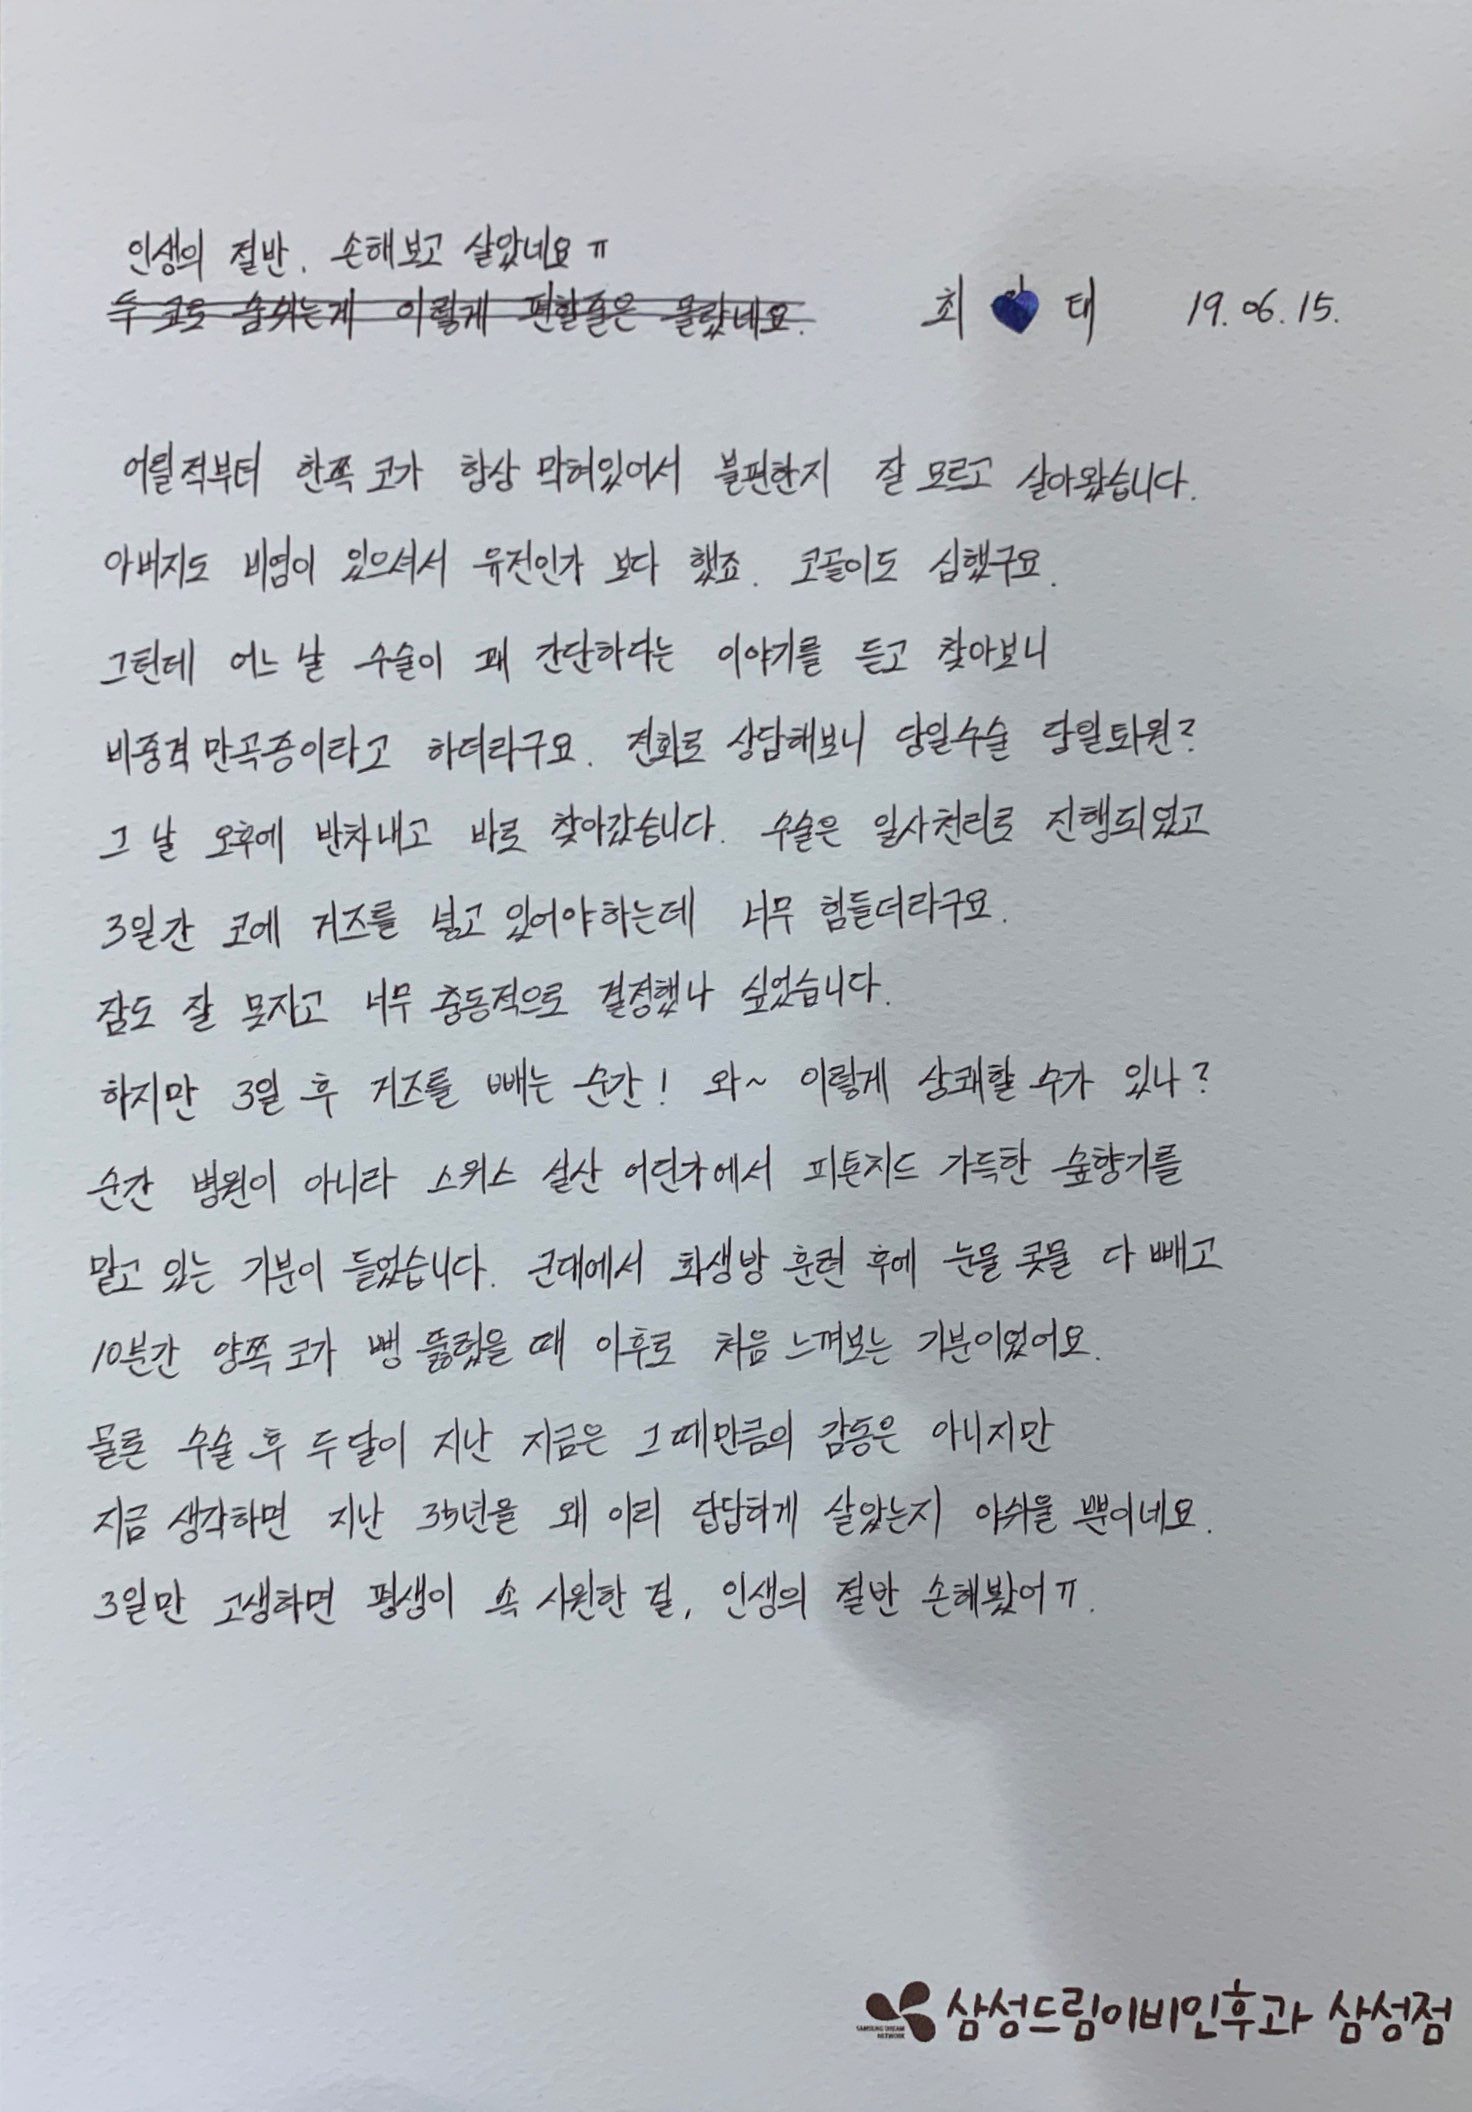 인생의 절반, 손해보고 살았네요 ㅠ
두 코로 숨쉬는게 이렇게 편할줄은 몰랐네요.
최 태 19.06.15.
어릴적부터 한쪽 코가 항상 막혀있어서 불편한지 잘 모르고 살아왔습니다.
아버지도 비염이 있으셔서 유전인가 보다 했죠. 코골이도 심했구요.
그런데 어느 날 수술이 꽤 간단하다는 이야기를 듣고 찾아보니
비중격 만곡증이라고 하더라구요. 전화로 상담해보니 당일수술 당일퇴원?
그 날 오후에 반차내고 바로 찾아갔습니다. 수술은 일사천리로 진행되었고
3일간 코에 거즈를 넣고 있어야하는데 너무 힘들더라구요.
잠도 잘 못자고 너무 충동적으로 결정했나 싶었습니다.
하지만 3일 후 거즈를 빼는 순간! 와~ 이렇게 상쾌할 수가 있나?
순간 병원이 아니라 스위스 설산 어딘가에서 피톤치드 가득한 숲향기를
맡고 있는 기분이 들었습니다. 군대에서 화생방 훈련 후에 눈물 콧물 다 빼고
10분간 양쪽 코가 뻥 뚫렸을 때 이후로 처음 느껴보는 기분이었어요.
물론 수술 후 두 달이 지난 지금은 그 때만큼의 감동은 아니지만
지금 생각하면 지난 35년을 왜 이리 답답하게 살았는지 아쉬울 뿐이네요.
3일만 고생하면 평생이 속 시원한 걸, 인생의 절반 손해봤어 ㅠ.
삼성드림이비인후과 삼성점
SAMSUNG DREAM
NETWORK